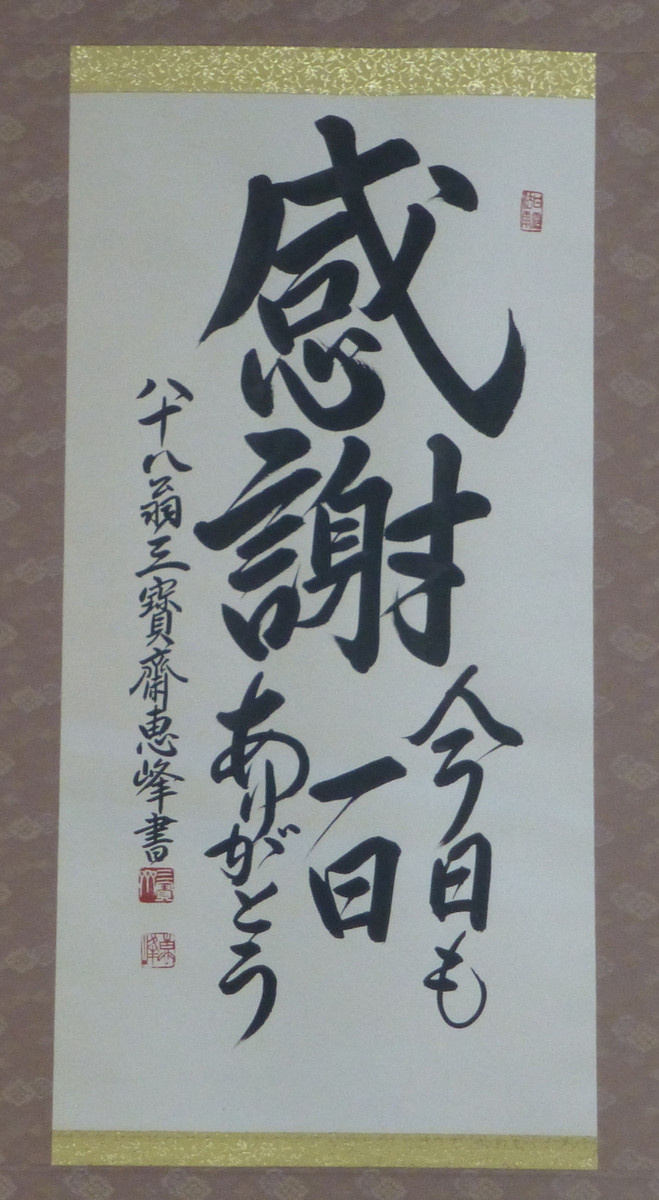 感謝
今日も
一日
ありがとう
八十八翁三寶齋恵峰書